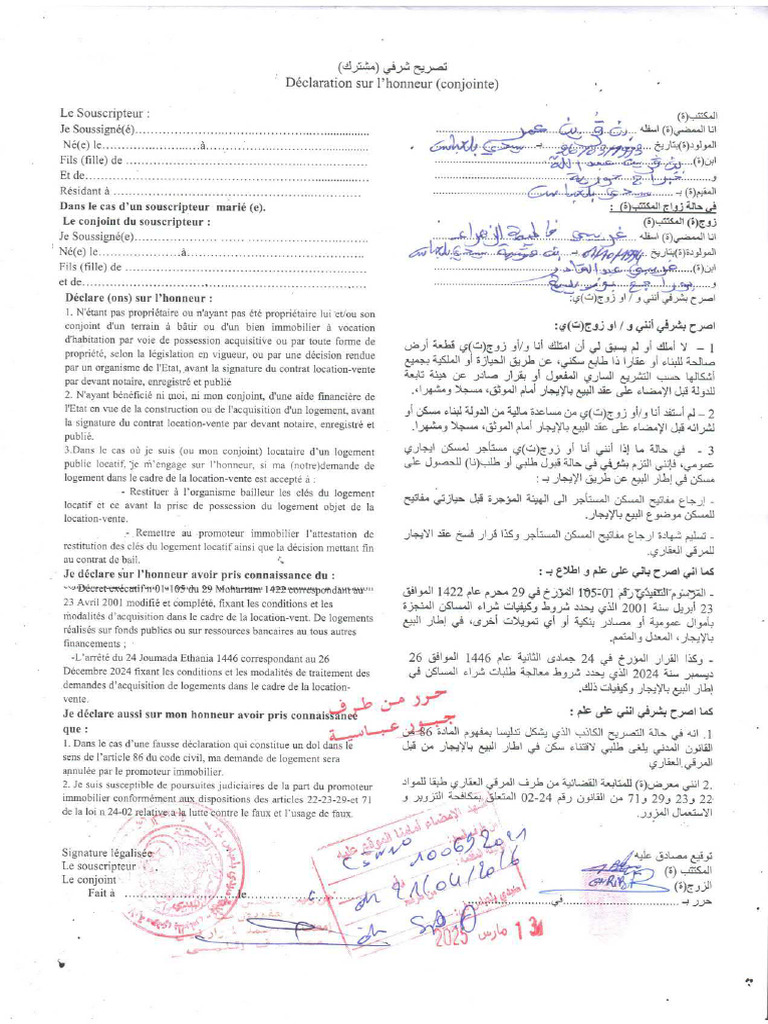 تصريح شرفي (مشترك)
Déclaration sur l'honneur (conjointe)
Le Souscripteur :
Je Soussigné(é)
Né(e) le à
Fils (fille) de
Et de
Résidant à
Dans le cas d'un souscripteur marié (e).
Le conjoint du souscripteur :
Je Soussigné(e)
Né(e) le à
Fils (fille) de
et de
Déclare (ons) sur l'honneur :
1. N'étant pas propriétaire ou n'ayant pas été propriétaire lui et/ou son
conjoint d'un terrain à bâtir ou d'un bien immobilier à vocation
d'habitation par voie de possession acquisitive ou par toute forme de
propriété, selon la législation en vigueur, ou par une décision rendue
par un organisme de l'Etat, avant la signature du contrat location-vente
par devant notaire, enregistré et publié
2. N'ayant bénéficié ni moi, ni mon conjoint, d'une aide financière de
l'Etat en vue de la construction ou de l'acquisition d'un logement, avant
la signature du contrat location-vente par devant notaire, enregistré et
publié.
3.Dans le cas où je suis (ou mon conjoint) locataire d'un logement
public locatif, je m'engage sur l'honneur, si ma (notre)demande de
logement dans le cadre de la location-vente est accepté à :
- Restituer à l'organisme bailleur les clés du logement
locatif et ce avant la prise de possession du logement objet de la
location-vente.
- Remettre au promoteur immobilier l'attestation de
restitution des clés du logement locatif ainsi que la décision mettant fin
au contrat de bail.
Je déclare sur l'honneur avoir pris connaissance du :
- Décret exécutif n°01-105 du 29 Moharram 1422 correspondant au
23 Avril 2001 modifié et complété, fixant les conditions et les
modalités d'acquisition dans le cadre de la location-vent. De logements
réalisés sur fonds publics ou sur ressources bancaires au tous autres
financements ;
-L'arrêté du 24 Joumada Ethania 1446 correspondant au 26
Décembre 2024 fixant les conditions et les modalités de traitement des
demandes d'acquisition de logements dans le cadre de la location-
vente.
Je déclare aussi sur mon honneur avoir pris connaissance
que :
1. Dans le cas d'une fausse déclaration qui constitue un dol dans le
sens de l'article 86 du code civil, ma demande de logement sera
annulée par le promoteur immobilier.
2. Je suis susceptible de poursuites judiciaires de la part du promoteur
immobilier conformément aux dispositions des articles 22-23-29-et 71
de la loi n 24-02 relative a la lutte contre le faux et l'usage de faux.
Signature légalisée
Le souscripteur
Le conjoint
Fait à le
المكتتب(ة)
انا الممضي(ة) اسفله
المولودة(ة) بتاريخ 26/03/1993 بـ سيدي بلعباس
ابن(ة)
و
المقيم(ة) بـ سيدي بلعباس
في حالة زواج المكتتب(ة) :
زوج(ة) المكتتب(ة)
انا الممضي(ة) اسفله فاطمة الزهراء
المولودة(ة)بتاريخ بـ
ابن(ة) عبد القادر
و
اصرح بشرفي أنني و / او زوج(ت)ي:
اصرح بشرفي أنني و / او زوج(ت)ي:
1 – لا أملك أو لم يسبق لي أن امتلك أنا و/أو زوج(ت)ي قطعة أرض
صالحة للبناء أو عقارا ذا طابع سكني، عن طريق الحيازة أو الملكية بجميع
أشكالها حسب التشريع الساري المفعول أو بقرار صادر عن هيئة تابعة
للدولة قبل الإمضاء على عقد البيع بالإيجار أمام الموثق، مسجلا ومشهرا.
2 – لم أستفد أنا و/أو زوج(ت)ي من مساعدة مالية من الدولة لبناء مسكن أو
لشرائه قبل الإمضاء على عقد البيع بالإيجار أمام الموثق، مسجلا ومشهرا.
3 - في حالة ما إذا أنني أنا أو زوج(ت)ي مستأجر لمسكن ايجاري
عمومي، فإنني التزم بشرفي في حالة قبول طلبي أو طلب(نا) للحصول على
مسكن في إطار البيع عن طريق الإيجار بـ :
- إرجاع مفاتيح المسكن المستأجر الى الهيئة المؤجرة قبل حيازتي مفاتيح
للمسكن موضوع البيع بالإيجار.
- تسليم شهادة ارجاع مفاتيح المسكن المستأجر وكذا قرار فسخ عقد الايجار
للمرقي العقاري.
كما اني اصرح باني على علم و اطلاع بـ :
- المرسوم التنفيذي رقم 01-105 المؤرخ في 29 محرم عام 1422 الموافق
23 أبريل سنة 2001 الذي يحدد شروط وكيفيات شراء المساكن المنجزة
بأموال عمومية أو مصادر بنكية أو أي تمويلات أخرى، في إطار البيع
بالإيجار، المعدل والمتمم.
- وكذا القرار المؤرخ في 24 جمادى الثانية عام 1446 الموافق 26
ديسمبر سنة 2024 الذي يحدد شروط معالجة طلبات شراء المساكن في
إطار البيع بالإيجار وكيفيات ذلك.
كما اصرح بشرفي انني على علم :
1. انه في حالة التصريح الكاذب الذي يشكل تدليسا بمفهوم المادة 86 من
القانون المدني يلغى طلبي لاقتناء سكن في اطار البيع بالإيجار من قبل
المرقي العقاري
2. انني معرض(ة) للمتابعة القضائية من طرف المرقي العقاري طبقا للمواد
22 و23 و29 و71 من القانون رقم 24-02 المتعلق بمكافحة التزوير و
الاستعمال المزور.
حرر من طرف
جبور عباسية
توقيع مصادق عليه
المكتتب (ة)
الزوج(ة)
حرر بـ في
100692021
21/04/2016
13 مارس 2025